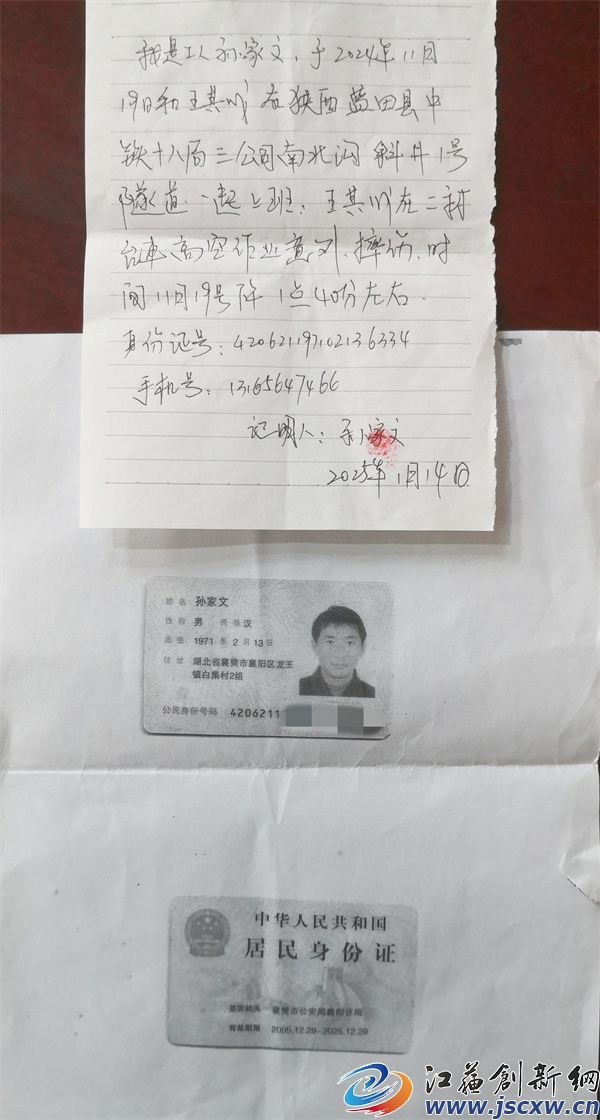 我是工人孙家文，于2024年11月
19日和王其川在狭西蓝田县中
铁十八局三公司南北沟斜井1号
隧道一起上班，王其川在二衬
台車高空作业意外摔伤，时
间11月19号阵1点40份左右．
身份证号：420621197102136334
手机号：13165647466
证明人：孙家文
2025年1月14日
姓名 孙家文
性别 男 民族 汉
出生 1971 年 2 月 13 日
住址 湖北省襄樊市襄阳区龙王
镇白集村2组
公民身份号码 4206211
中华人民共和国
居民身份证
签发机关 襄樊市公安局襄阳分局
有效期限 2005.12.29-2025.12.29
江苏創新網
www.jscxw.cn